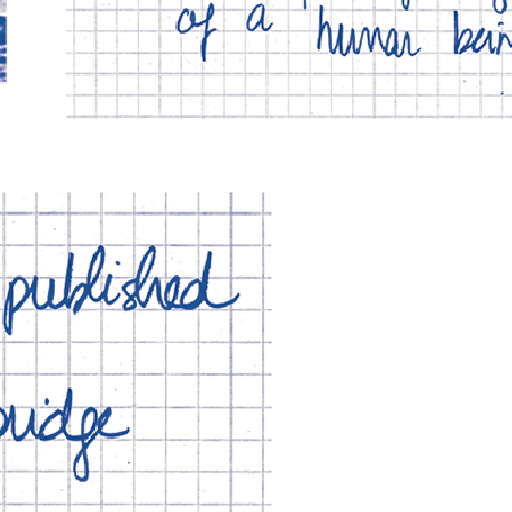 of a human bein
published
bridge